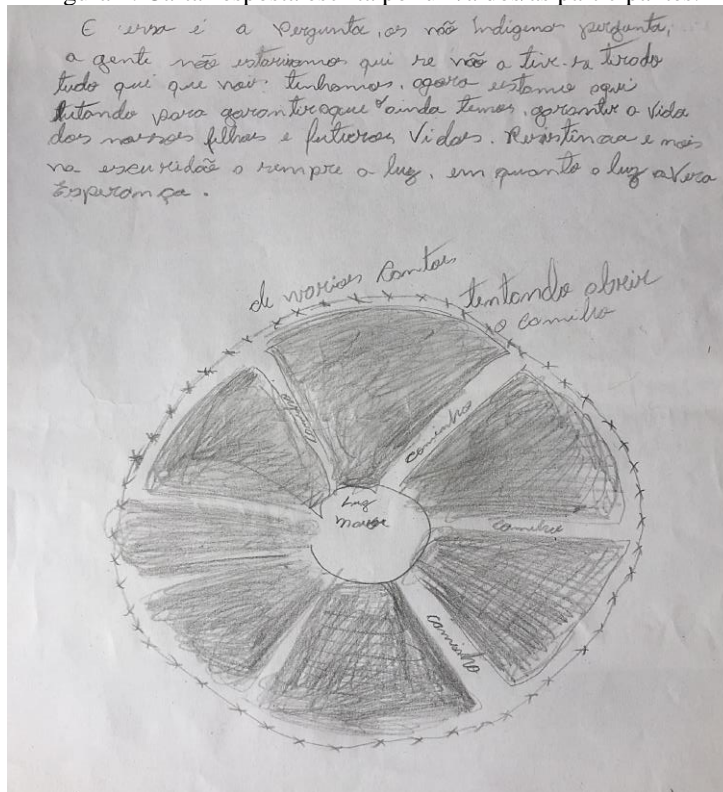 E essa é a Pergunta, os não Indigenas pergunta,
a gente não estariamos qui se não a tive-se tirado
tudo qui que nois tinhamos. agora estamo aqui
lutando para garantir o que ainda temos, garantir a vida
dos nossos filhos e futuros Vidas. Resistencia e mais
na escuridão o sempre a luz, em quanto o luz avera
Esperança.
de varios Cantos tentando abrir
o caminho
caminho
caminho
Luz
caminho
caminho